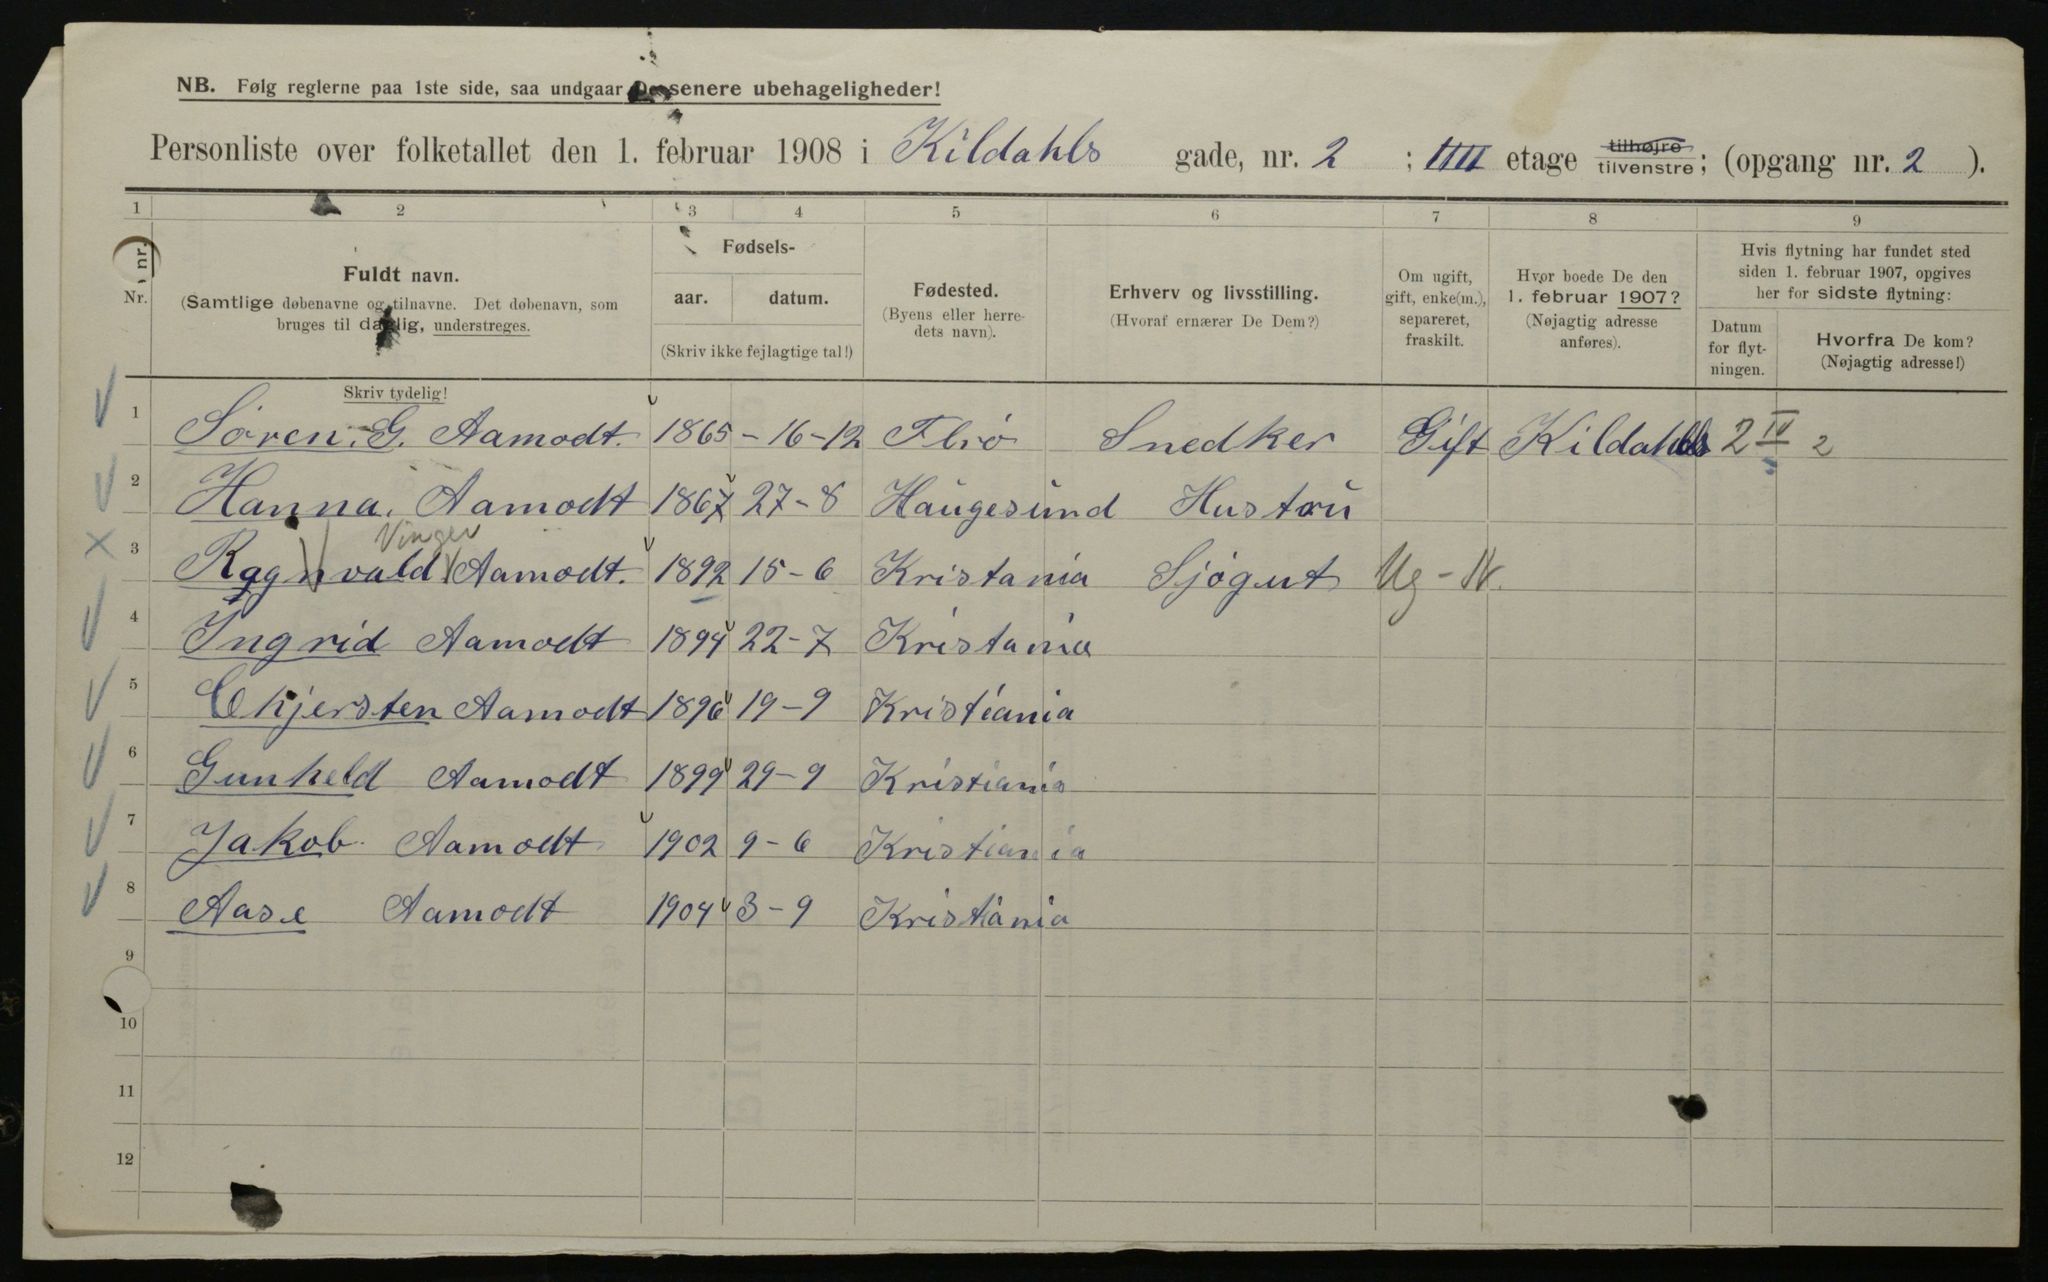 NB. Følg reglerne paa 1ste side, saa undgaar De senere ubehageligheder!
Personliste over folketallet den 1. februar 1908 i Kildahls gade, nr. 2 ; IIII etage tilhøjre tilvenstre; (opgang nr. 2 ).
1 2 3 4 5 6 7 8 9
Nr. nr.
Fuldt navn.
(Samtlige døbenavne og tilnavne. Det døbenavn, som
bruges til daglig, understreges.
Skriv tydelig!
Fødsels-
aar. datum.
(Skriv ikke fejlagtige tal!)
Fødested.
(Byens eller herre-
dets navn).
Erhverv og livsstilling.
(Hvoraf ernærer De Dem?)
Om ugift,
gift, enke(m.),
separeret,
fraskilt.
Hvor boede De den
1. februar 1907?
(Nøjagtig adresse
anføres).
Hvis flytning har fundet sted
siden 1. februar 1907, opgives
her for sidste flytning:
Datum
for flyt-
ningen.
Hvorfra De kom?
(Nøjagtig adresse!)
1 Søren. G. Aamodt. 1865 - 16-12 Flrö Snedker Gift Kildahls 2 IV 2
2 Hanna. Aamodt 1867 27-8 Haugesund Hustru
Vinger
3 Ragnvald Aamodt. 1892 15-6 Kristania Sjøgut Ug - N.
4 Ingrid Aamodt 1894 22-7 Kristania
5 Chjersten Aamodt 1896 19-9 Kristiania
6 Gunheld Aamodt 1899 29-9 Kristiania
7 Jakob Aamodt 1902 9-6 Kristiania
8 Aase Aamodt 1904 3-9 Kristiania
9
10
11
12